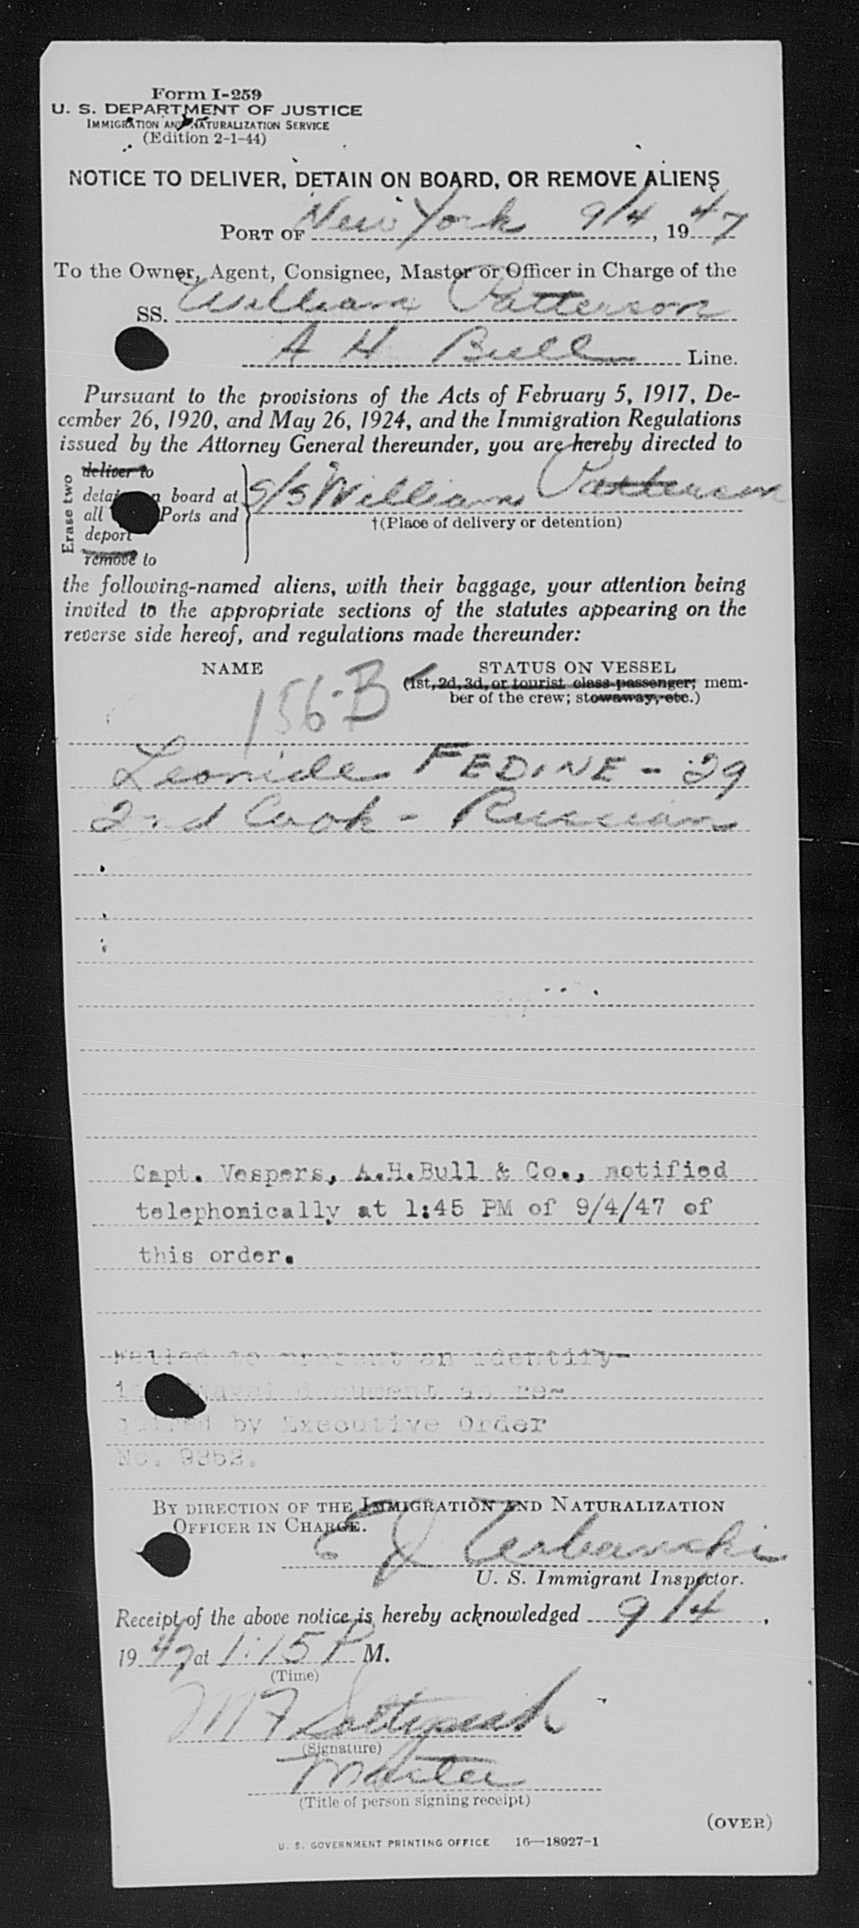 Form I-259
U. S. DEPARTMENT OF JUSTICE
IMMIGRATION AND NATURALIZATION SERVICE
(Edition 2-1-44)
NOTICE TO DELIVER, DETAIN ON BOARD, OR REMOVE ALIENS
PORT OF New York 9/4, 1947
To the Owner, Agent, Consignee, Master or Officer in Charge of the
SS. William Patterson
A H Bull Line.
Pursuant to the provisions of the Acts of February 5, 1917, De-
cember 26, 1920, and May 26, 1924, and the Immigration Regulations
issued by the Attorney General thereunder, you are hereby directed to
Erase two
deliver to
detain on board at
all Ports and
deport
remove to
S/S William Patterson
†(Place of delivery or detention)
the following-named aliens, with their baggage, your attention being
invited to the appropriate sections of the statutes appearing on the
reverse side hereof, and regulations made thereunder:
NAME STATUS ON VESSEL
(1st, 2d, 3d, or tourist class passenger; mem-
ber of the crew; stowaway, etc.)
156-B
Leonide FEDINE - 29
2nd Cook - Russian
Capt. Vespers, A.H.Bull & Co., notified
telephonically at 1:45 PM of 9/4/47 of
this order.
Failed to present an identify-
ing travel document as re-
quired by Executive Order
No. 9352.
BY DIRECTION OF THE IMMIGRATION AND NATURALIZATION
OFFICER IN CHARGE.
E J Urbanski
U. S. Immigrant Inspector.
Receipt of the above notice is hereby acknowledged 9/4,
1947 at 1:15 P M.
(Time)
M F
(Signature)
Master
(Title of person signing receipt)
(OVER)
U. S. GOVERNMENT PRINTING OFFICE 16—18927-1